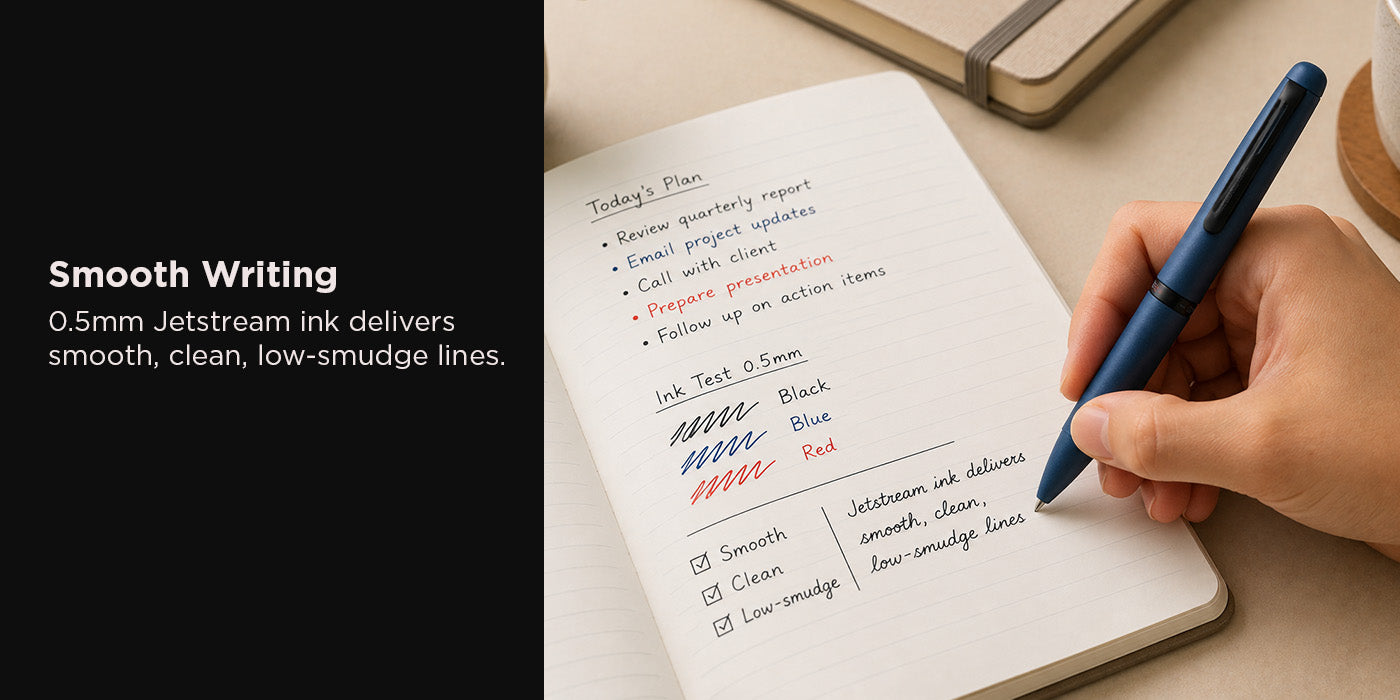 Smooth Writing
0.5mm Jetstream ink delivers
smooth, clean, low-smudge lines.
Today's Plan
• Review quarterly report
• Email project updates
• Call with client
• Prepare presentation
• Follow up on action items
Ink Test 0.5mm
Black
Blue
Red
☑ Smooth
☑ Clean
☑ Low-smudge
Jetstream ink delivers
smooth, clean,
low-smudge lines